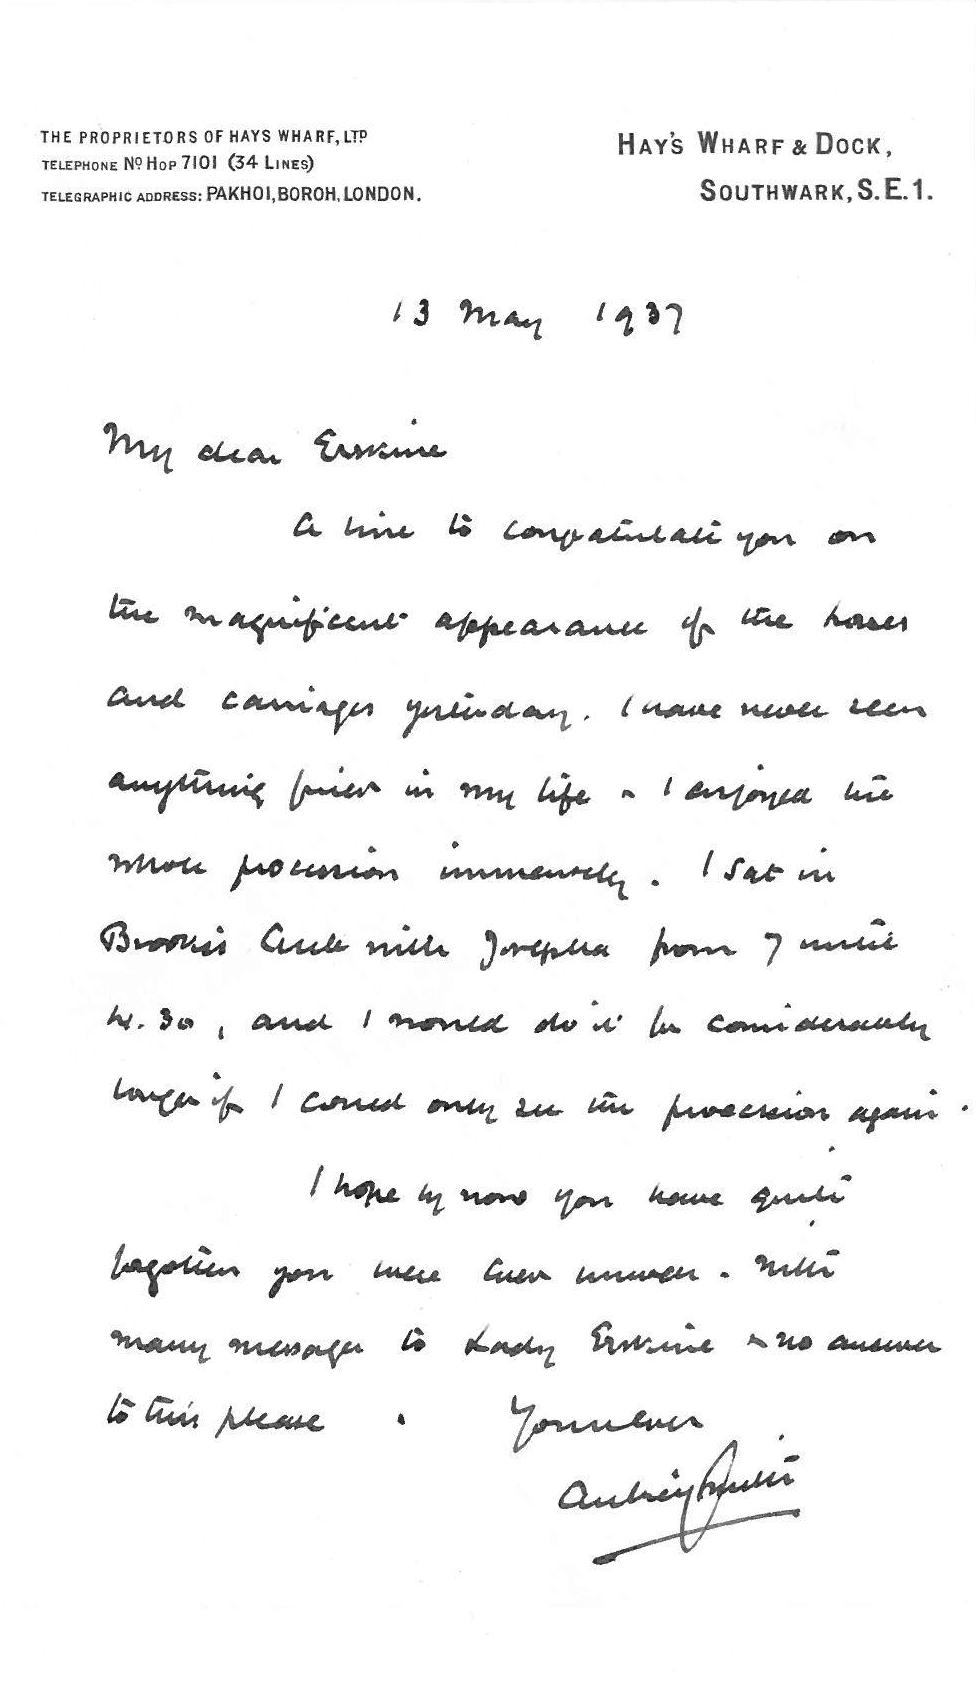 THE PROPRIETORS OF HAYS WHARF, LTD
TELEPHONE NO HOP 7101 (34 LINES)
TELEGRAPHIC ADDRESS: PAKHOI, BOROH, LONDON.
HAY'S WHARF & DOCK,
SOUTHWARK, S.E.1.
13 May 1937
My dear Erskine
A line to congratulate you on
the magnificent appearance of the horses
and carriages yesterday. I have never seen
anything finer in my life & I enjoyed the
whole procession immensely. I sat in
Brooks's Club with Josepha from 7 until
4.30, and I would do it for considerably
longer if I could only see the procession again.
I hope by now you have quite
forgotten you were ever unwell. With
many messages to Lady Erskine & no answer
to this please.
Yours ever
Aubrey Smith